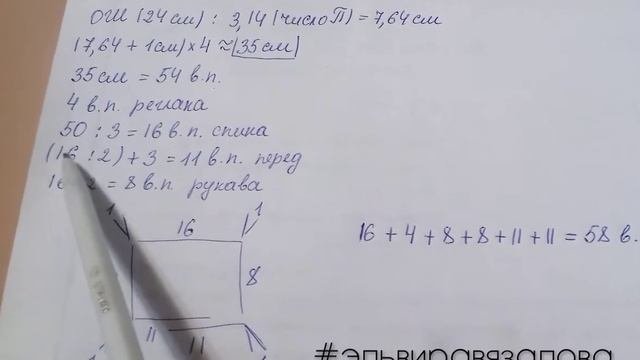 ОШ (24 см) : 3,14 (число П) = 7,64 см
(7,64 + 1 см) × 4 ≈ 35 см
35 см = 54 в.п.
4 в.п. реглана
50 : 3 = 16 в.п. спина
(16 : 2) + 3 = 11 в.п. перед
2 = 8 в.п. рукава
1 16 1
8
11 11
16 + 4 + 8 + 8 + 11 + 11 = 58 в.